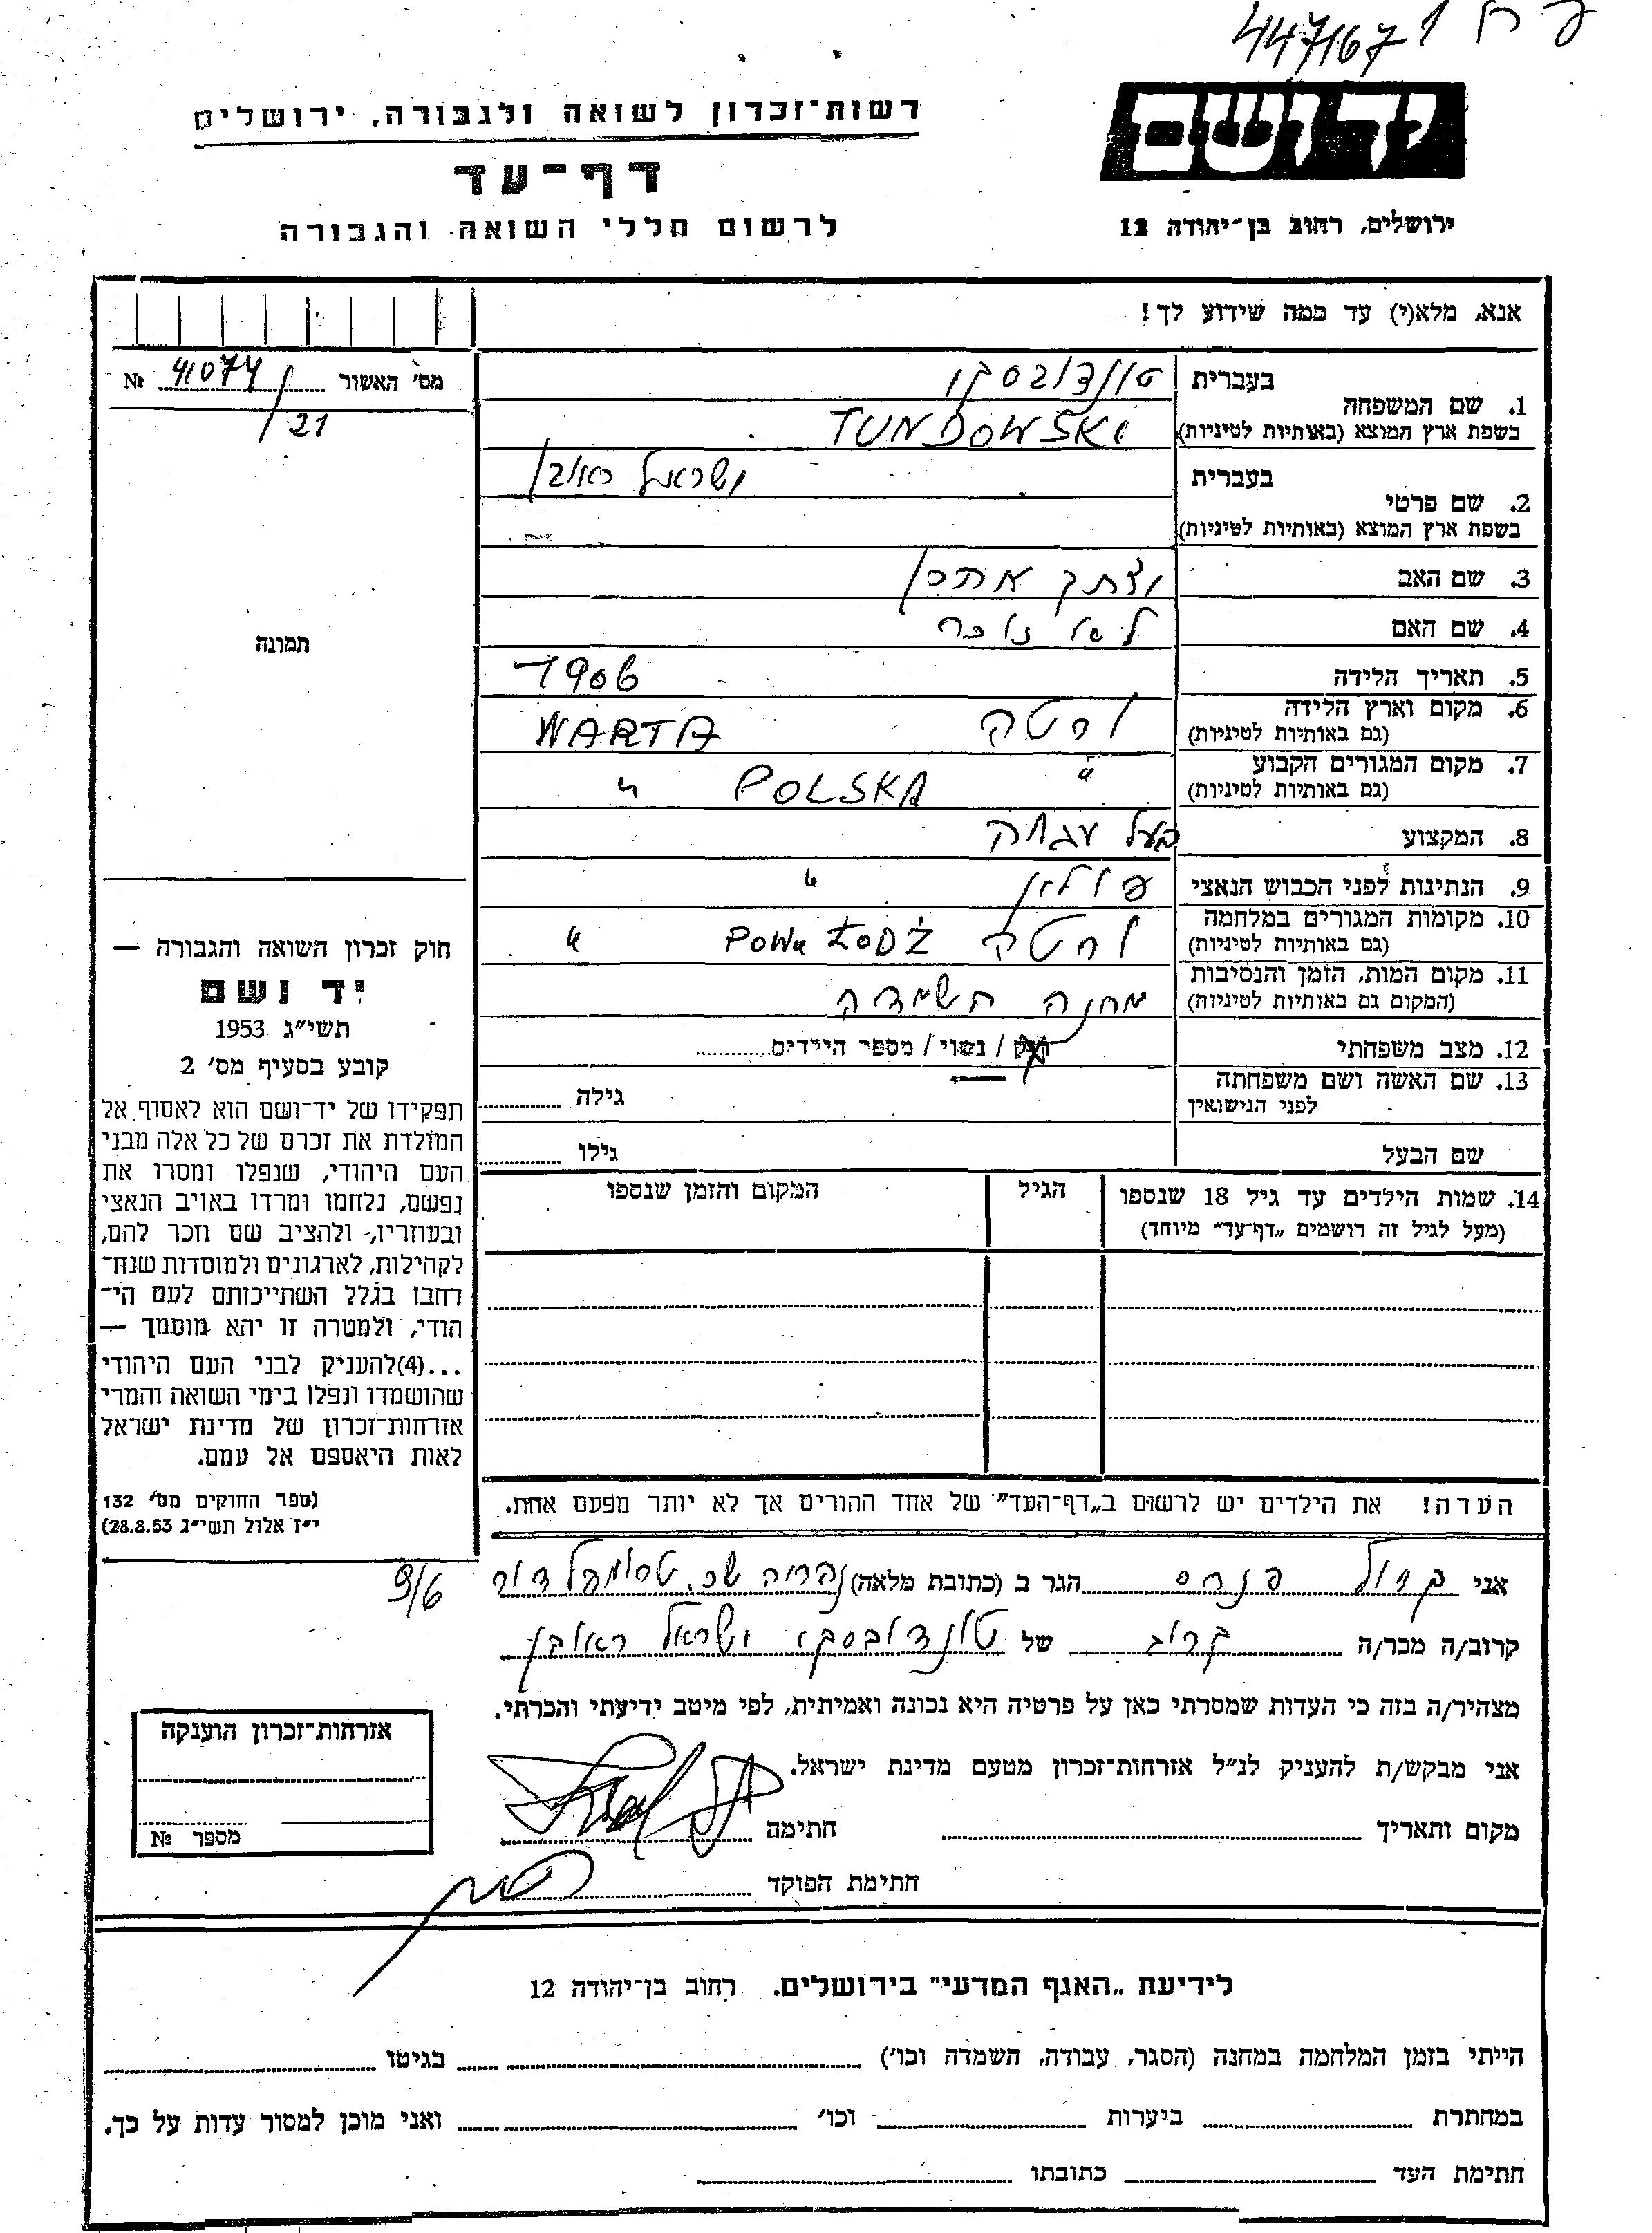 447167 1
רשות־זכרון לשואה ולגבורה, ירושלים
דף־עד
לרשום חללי השואה והגבורה
יד ושם
ירושלים, רחוב בן־יהודה 12
אנא, מלא(י) עד כמה שידוע לך!
מס׳ האשור 41074 №
/21
1. שם המשפחה בעברית טונדובסקי
בשפת ארץ המוצא (באותיות לטיניות) TUNDOWSKI
2. שם פרטי בעברית ישראל ראובן
בשפת ארץ המוצא (באותיות לטיניות)
3. שם האב יצחק אהרן
4. שם האם לאה
5. תאריך הלידה 1906
6. מקום וארץ הלידה ורטה WARTA
(גם באותיות לטיניות)
7. מקום המגורים הקבוע " POLSKA "
(גם באותיות לטיניות)
8. המקצוע בעל עגלה
9. הנתינות לפני הכבוש הנאצי פולין "
10. מקומות המגורים במלחמה ורטה POW. ŁODŹ "
(גם באותיות לטיניות)
11. מקום המות, הזמן והנסיבות מחנה השמדה
(המקום גם באותיות לטיניות)
12. מצב משפחתי רווק / נשוי / מספר הילדים
13. שם האשה ושם משפחתה גילה
לפני הנישואין
שם הבעל גילו
14. שמות הילדים עד גיל 18 שנספו הגיל המקום והזמן שנספו
(מעל לגיל זה רושמים „דף־עד״ מיוחד)
הערה! את הילדים יש לרשום ב„דף־העד״ של אחד ההורים אך לא יותר מפעם אחת.
תמונה
חוק זכרון השואה והגבורה —
יד ושם
תשי״ג 1953
קובע בסעיף מס׳ 2
תפקידו של יד־ושם הוא לאסוף אל
המולדת את זכרם של כל אלה מבני
העם היהודי, שנפלו ומסרו את
נפשם, נלחמו ומרדו באויב הנאצי
ובעוזריו, ולהציב שם וזכר להם,
לקהילות, לארגונים ולמוסדות שנח־
רחבו בגלל השתייכותם לעם הי־
הודי, ולמטרה זו יהא מוסמך —
...(4)להעניק לבני העם היהודי
שהושמדו ונפלו בימי השואה והמרי
אזרחות־זכרון של מדינת ישראל
לאות היאספם אל עמם.
(ספר החוקים מס׳ 132
י״ז אלול תשי״ג 28.8.53)
אני קרול פנחס הגר ב (כתובת מלאה) נהריה שכ. טרומפלדור 9/6
קרוב/ה מכר/ה קרוב של טונדובסקי ישראל ראובן
מצהיר/ה בזה כי העדות שמסרתי כאן על פרטיה היא נכונה ואמיתית, לפי מיטב ידיעתי והכרתי.
אני מבקש/ת להעניק לנ״ל אזרחות־זכרון מטעם מדינת ישראל.
מקום ותאריך חתימה
חתימת הפוקד
אזרחות־זכרון הוענקה
מספר №
לידיעת „האגף המדעי״ בירושלים. רחוב בן־יהודה 12
הייתי בזמן המלחמה במחנה (הסגר, עבודה, השמדה וכו׳) בגיטו
במחתרת ביערות וכו׳ ואני מוכן למסור עדות על כך.
חתימת העד כתובתו